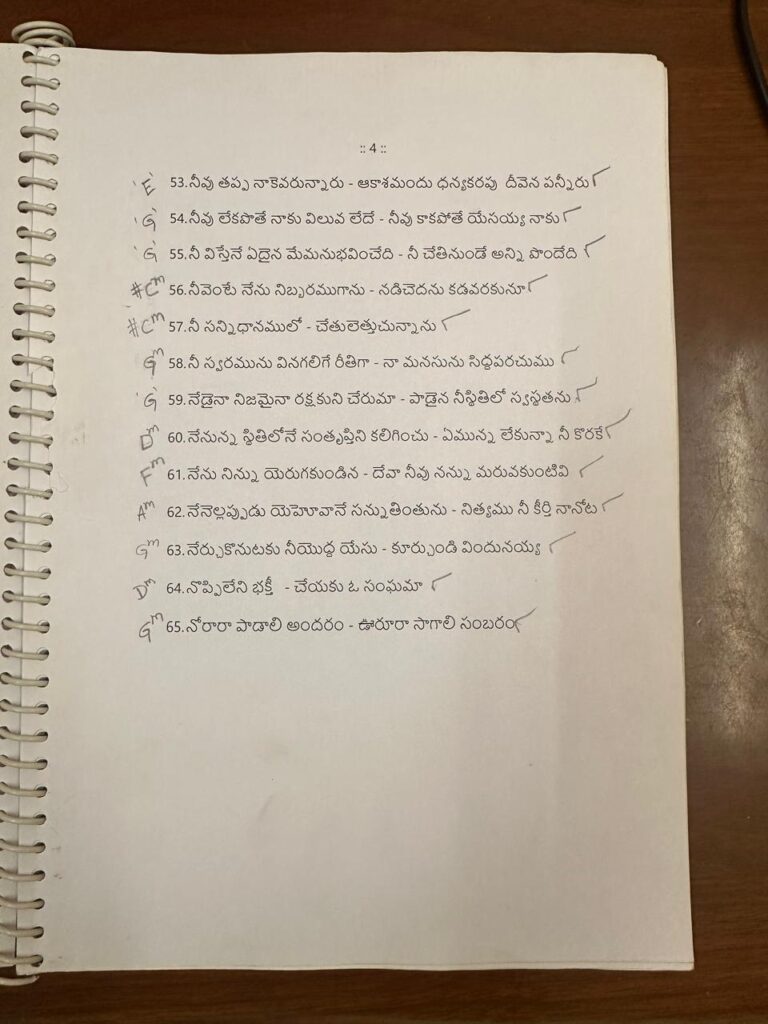 :: 4 ::
'E' 53.నీవు తప్ప నాకెవరున్నారు - ఆకాశమందు ధన్యకరపు దీవెన పన్నీరు ✓
'G' 54.నీవు లేకపొతే నాకు విలువ లేదే - నీవు కాకపోతే యేసయ్య నాకు ✓
'G' 55.నీ విస్తేనే ఏదైన మేమనుభవించేది - నీ చేతినుండే అన్ని పొందేది ✓
#Cm 56.నీవెంటే నేను నిబ్బరముగాను - నడిచెదను కడవరకునూ ✓
#Cm 57.నీ సన్నిధానములో - చేతులెత్తుచున్నాను ✓
Gm 58.నీ స్వరమును వినగలిగే రీతిగా - నా మనసును సిద్ధపరచుము ✓
'G' 59.నేడైనా నిజమైనా రక్షకుని చేరుమా - పాడైన నీస్థితిలో స్వస్థతను ✓
Dm 60.నేనున్న స్థితిలోనే సంతృప్తిని కలిగించు - ఏమున్న లేకున్నా నీ కొరకే ✓
Fm 61.నేను నిన్ను యెరుగకుండిన - దేవా నీవు నన్ను మరువకుంటివి ✓
Am 62.నేనెల్లప్పుడు యెహెూవానే సన్నుతింతును - నిత్యము నీ కీర్తి నానోట ✓
Gm 63.నేర్చుకొనుటకు నీయొద్ద యేసు - కూర్చుండి విందునయ్య ✓
Dm 64.నొప్పిలేని భక్తీ - చేయకు ఓ సంఘమా ✓
Gm 65.నోరారా పాడాలి అందరం - ఊరూరా సాగాలి సంబరం ✓